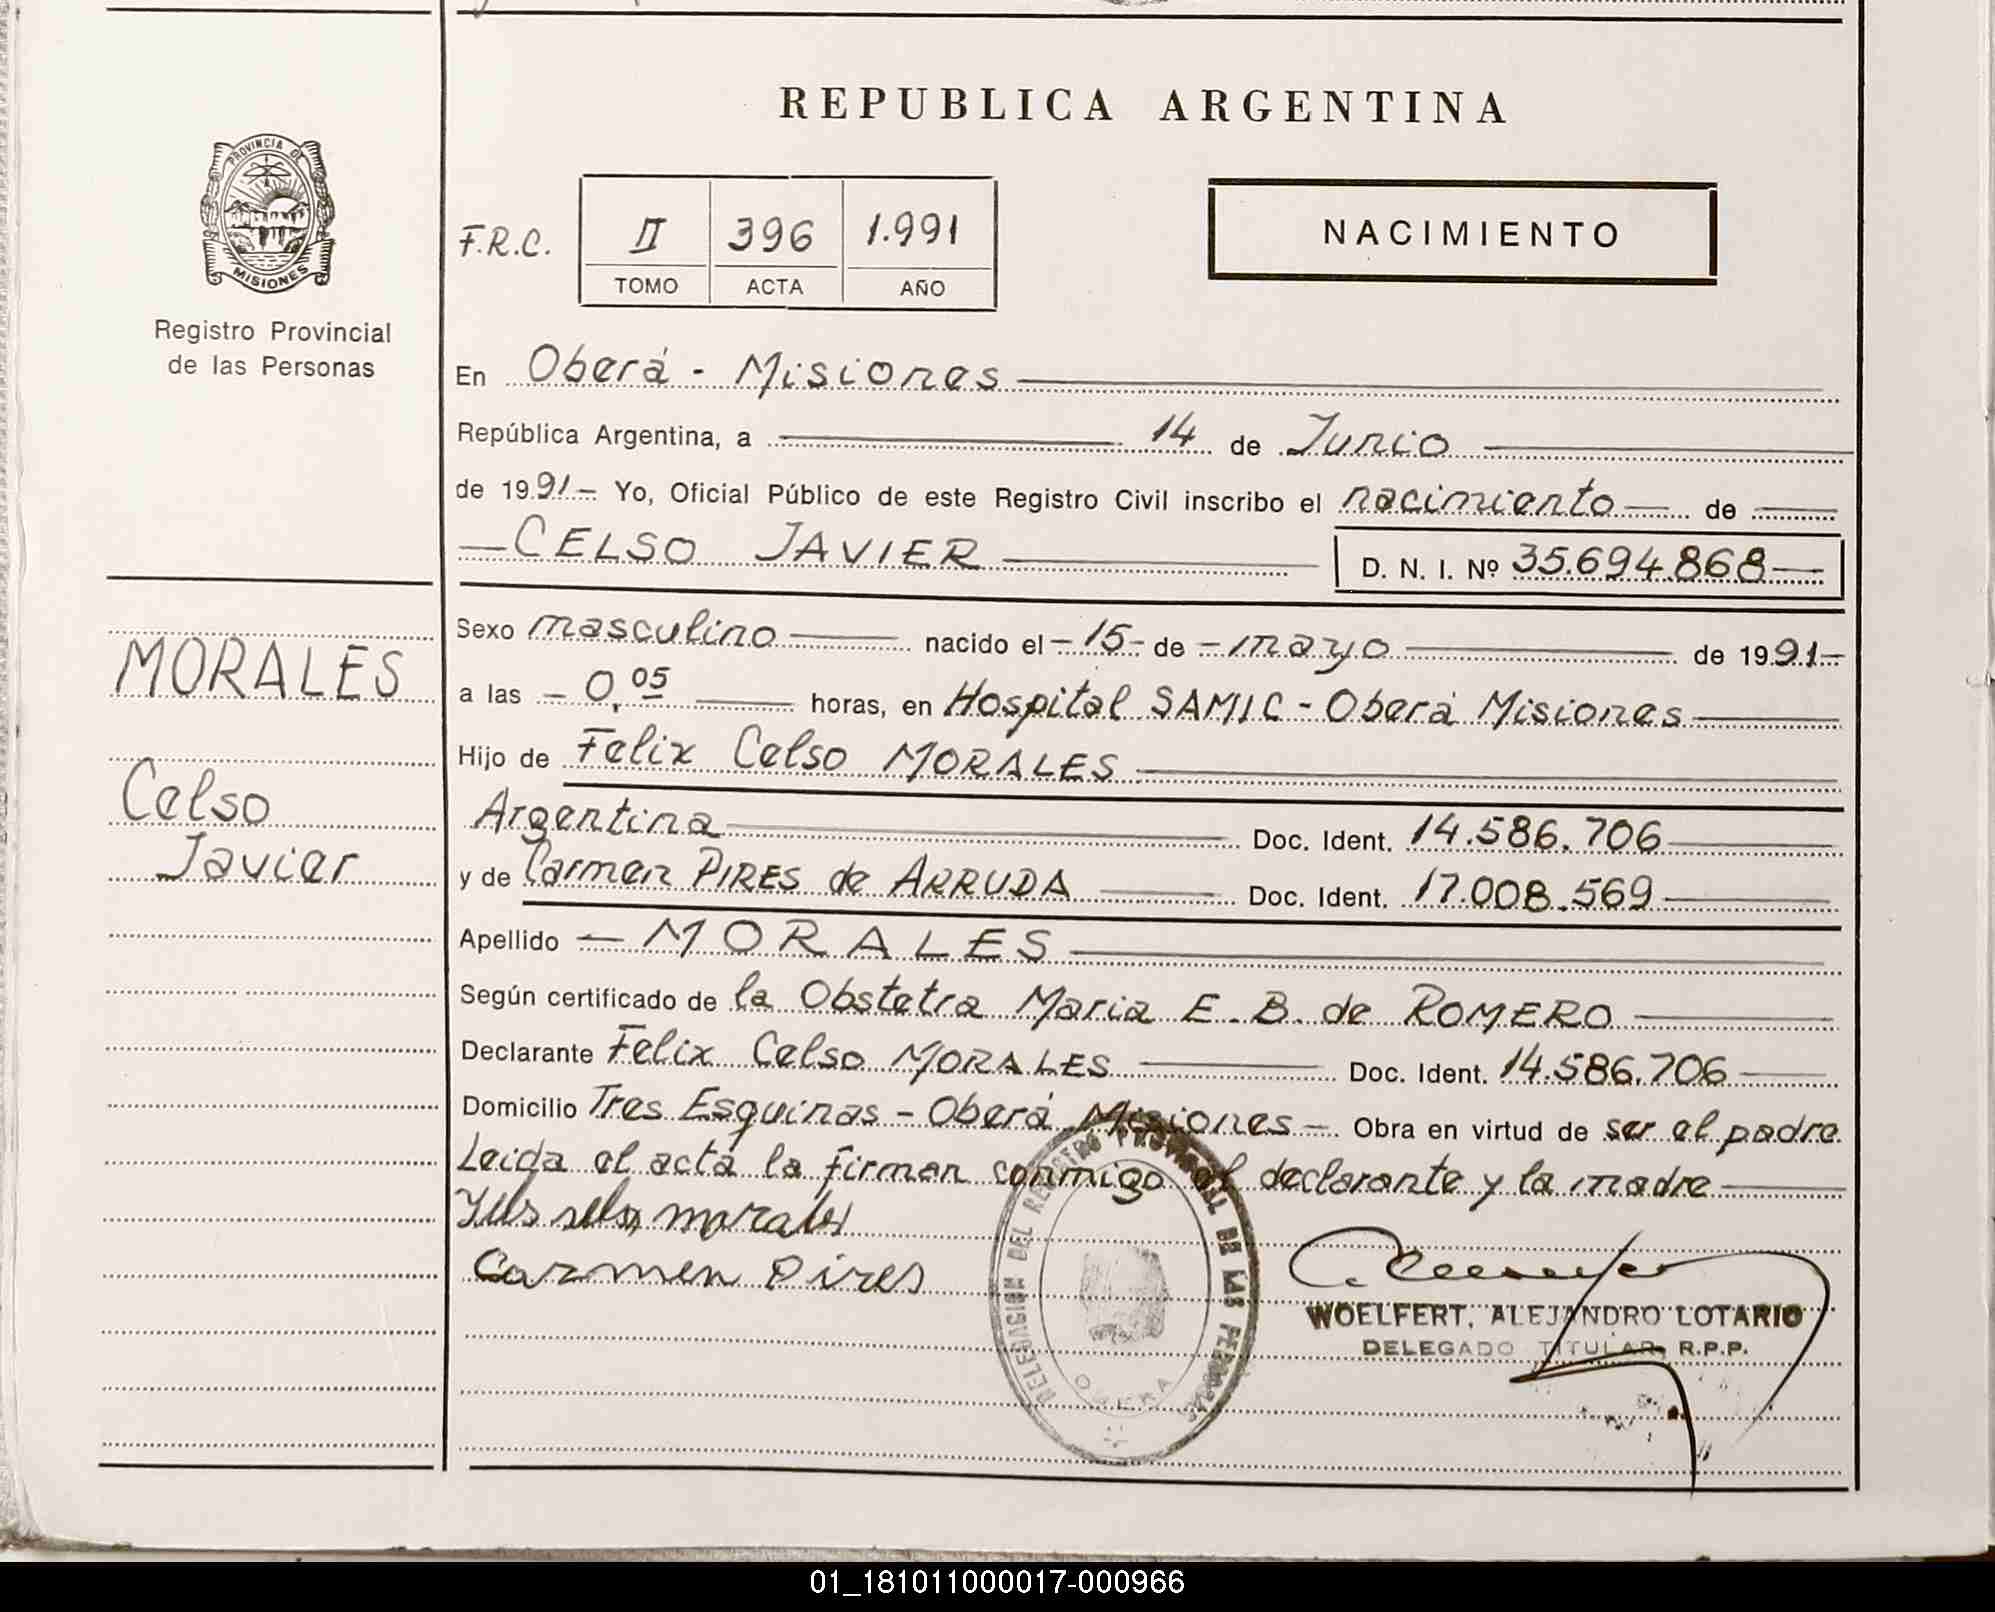 REPUBLICA ARGENTINA
PROVINCIA DE
MISIONES
Registro Provincial
de las Personas
F.R.C. II 396 1.991
TOMO ACTA AÑO
NACIMIENTO
En Oberá - Misiones
República Argentina, a 14 de Junio
de 1991- Yo, Oficial Público de este Registro Civil inscribo el nacimiento de
CELSO JAVIER D. N. I. Nº 35.694.868
MORALES
Celso
Javier
Sexo masculino nacido el -15- de - mayo de 1991-
a las - 0,05 horas, en Hospital SAMIC - Oberá Misiones
Hijo de Felix Celso MORALES
Argentina Doc. Ident. 14.586.706
y de Carmen PIRES de ARRUDA Doc. Ident. 17.008.569
Apellido - MORALES
Según certificado de la Obstetra Maria E. B. de ROMERO
Declarante Felix Celso MORALES Doc. Ident. 14.586.706
Domicilio Tres Esquinas - Oberá Misiones - Obra en virtud de ser el padre
Leida el acta la firman conmigo el declarante y la madre
morales
Carmen Pires
DELEGACION DEL REGISTRO PROVINCIAL DE LAS PERSONAS
OBERA
WOELFERT, ALEJANDRO LOTARIO
DELEGADO TITULAR, R.P.P.
01_181011000017-000966